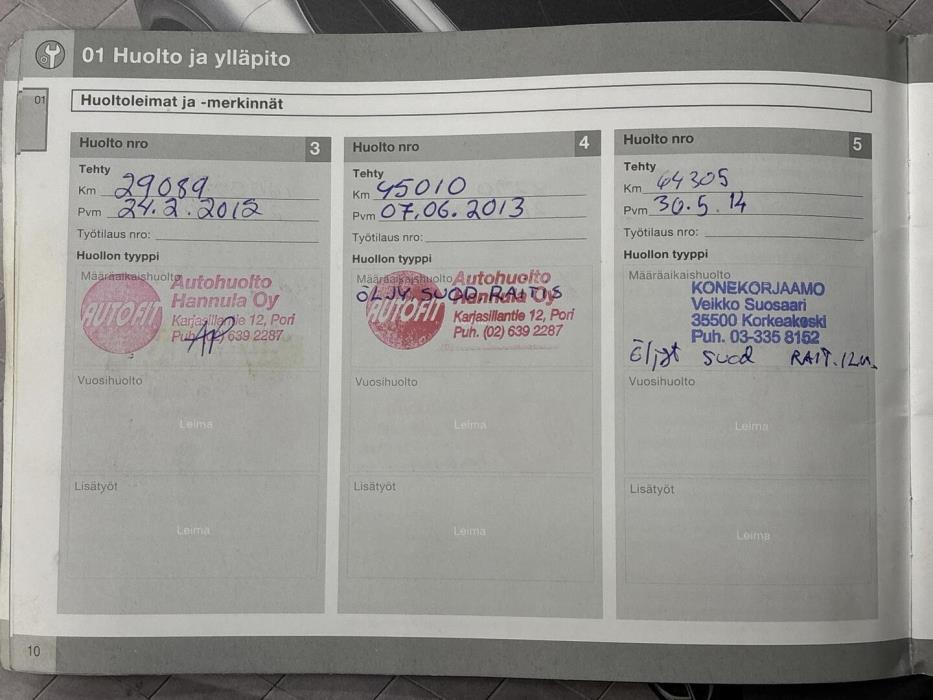 01 Huolto ja ylläpito
01
Huoltoleimat ja -merkinnät
Huolto nro 3
Tehty
Km 29089
Pvm 24.2.2012
Työtilaus nro:
Huollon tyyppi
Määräaikaishuolto
AUTOFIT
Autohuolto
Hannula Oy
Karjasillantie 12, Pori
Puh. (02) 639 2287
AP
Vuosihuolto
Leima
Lisätyöt
Leima
Huolto nro 4
Tehty
Km 45010
Pvm 07.06.2013
Työtilaus nro:
Huollon tyyppi
Määräaikaishuolto
AUTOFIT
Autohuolto
Hannula Oy
Karjasillantie 12, Pori
Puh. (02) 639 2287
ÖLJY SUOD. RAITIS
Vuosihuolto
Leima
Lisätyöt
Leima
Huolto nro 5
Tehty
Km 64305
Pvm 30.5.14
Työtilaus nro:
Huollon tyyppi
Määräaikaishuolto
KONEKORJAAMO
Veikko Suosaari
35500 Korkeakoski
Puh. 03-335 8152
suod RAIT.ILM.
Vuosihuolto
Leima
Lisätyöt
Leima
10